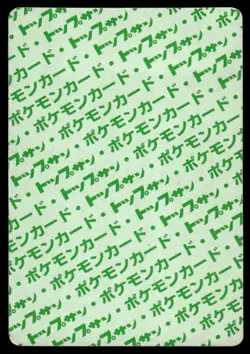 ポケモンカード・トップサン
トップサン・ポケモンカード・トップサン
ポケモンカード・トップサン・ポケモン
トップサン・ポケモンカード・トップサン
ポケモンカード・トップサン・ポケモン
トップサン・ポケモンカード・トップサン
ポケモンカード・トップサン・ポケモン
トップサン・ポケモンカード・トップサン
ポケモンカード・トップサン・ポケモン
トップサン・ポケモンカード